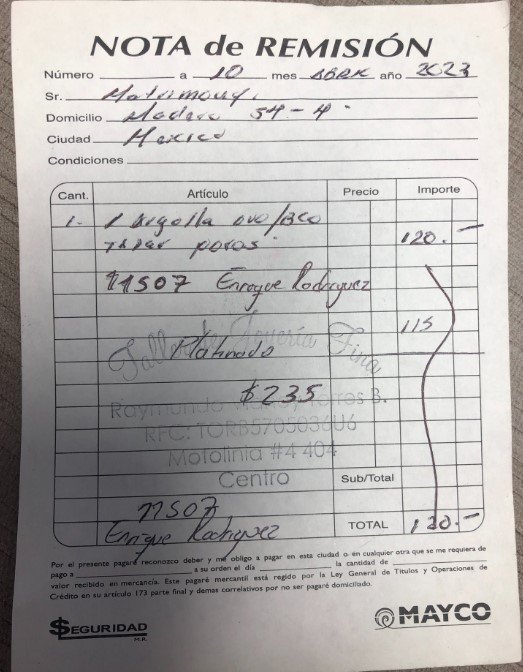 NOTA de REMISIÓN
Número a 10 mes ABRIL año 2023
Sr. Matrimony.
Domicilio Madero 54-4.
Ciudad Mexico
Condiciones
Cant. Artículo Precio Importe
1.- 1 Argolla oro/Bco
tapar poros. 120.-
11507 Enrique Rodriguez
Taller de Joyería Fina
115
Platinado
$235
Raymundo Torres B.
RFC: TORB5705036U6
Motolinia #4 404
Centro
Sub/Total
11507
Enrique Rodriguez
TOTAL 120.-
Por el presente pagaré reconozco deber y me obligo a pagar en esta ciudad o en cualquier otra que se me requiera de
pago a a su orden el día la cantidad de
valor recibido en mercancía. Este pagaré mercantil está regido por la Ley General de Títulos y Operaciones de
Crédito en su artículo 173 parte final y demas correlativos por no ser pagaré domiciliado.
$EGURIDAD
M.R.
MAYCO